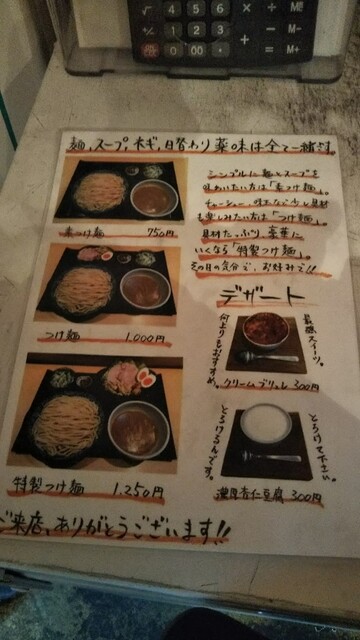 4 5 6 × M
1 2 3 + M-
0 00 • = M+
麺、スープ、ネギ、日替わり薬味は全て一緒です。
シンプルに麺とスープを
味わいたい方は「素つけ麺」。
チャーシュー、味玉など少し具材
も楽しみたい方は「つけ麺」。
具材たっぷり、豪華に
いくなら「特製つけ麺」。
その日の気分で、お好みで!!
素つけ麺 750円
つけ麺 1.000円
特製つけ麺 1.250円
デザート
最高スイーツ。
何よりもおすすめ。
クリームブリュレ 300円
とろけて下さい。
とろけるんです。
濃厚杏仁豆腐 300円
ご来店、ありがとうございます!!